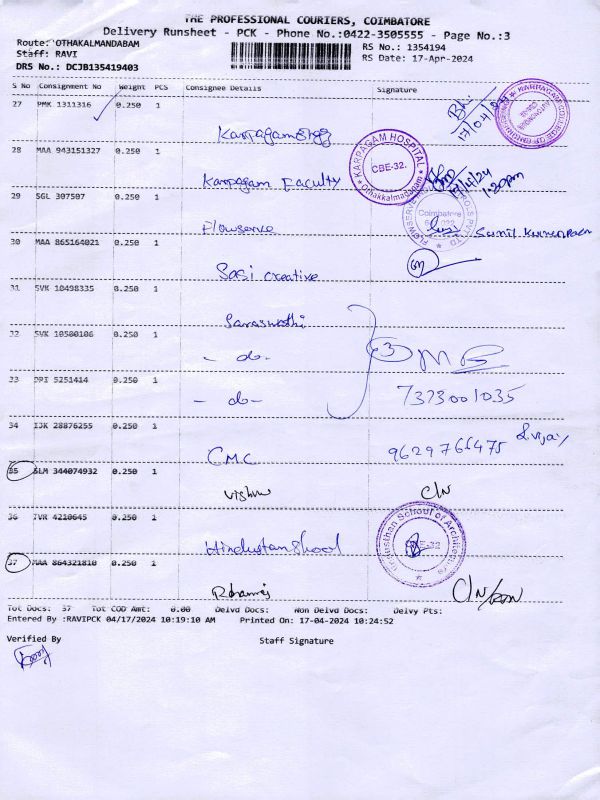 THE PROFESSIONAL COURIERS, COIMBATORE
Delivery Runsheet - PCK - Phone No.:0422-3505555 - Page No.:3
Route: 'OTHAKALMANDABAM
RS No.: 1354194
Staff: RAVI
RS Date: 17-Apr-2024
DRS No.: DCJB135419403
S No Consignment No Weight PCS Consignee Details Signature
27 PMK 1311316 0.250 1
17/04/
28 MAA 943151327 0.250 1
KARPAGAM HOSPITAL
CBE-32.
Othakkalmandapam
Karpagam Faculty
17/4/24
1:20pm
29 SGL 307507 0.250 1
Flowserve
Coimbatore
30 MAA 865164021 0.250 1
Sasi creative
31 SVK 10498335 0.250 1
Saraswathi
32 SVK 10500106 0.250 1
- do -
33 DPI 5251414 0.250 1
- do -
7373001035
34 IJK 28876255 0.250 1
CMC
9629766475
Vijay
35 SLM 344074932 0.250 1
Vishnu
C/N
36 TVR 4210645 0.250 1
Hindusthan School of Architecture
37 MAA 864321810 0.250 1
C/N
Tot Docs: 37 Tot COD Amt: 0.00 Delvd Docs: Non Delvd Docs: Delvy Pts:
Entered By :RAVIPCK 04/17/2024 10:19:10 AM Printed On: 17-04-2024 10:24:52
Verified By Staff Signature